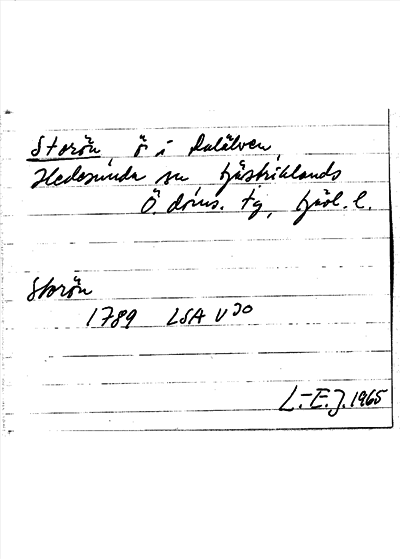 Storön, ö i Dalälven,
Hedesunda sn Gästriklands
Ö. doms. tg, Gävl. l.
Storön
1789 LSA V 30
L.-E.J. 1965